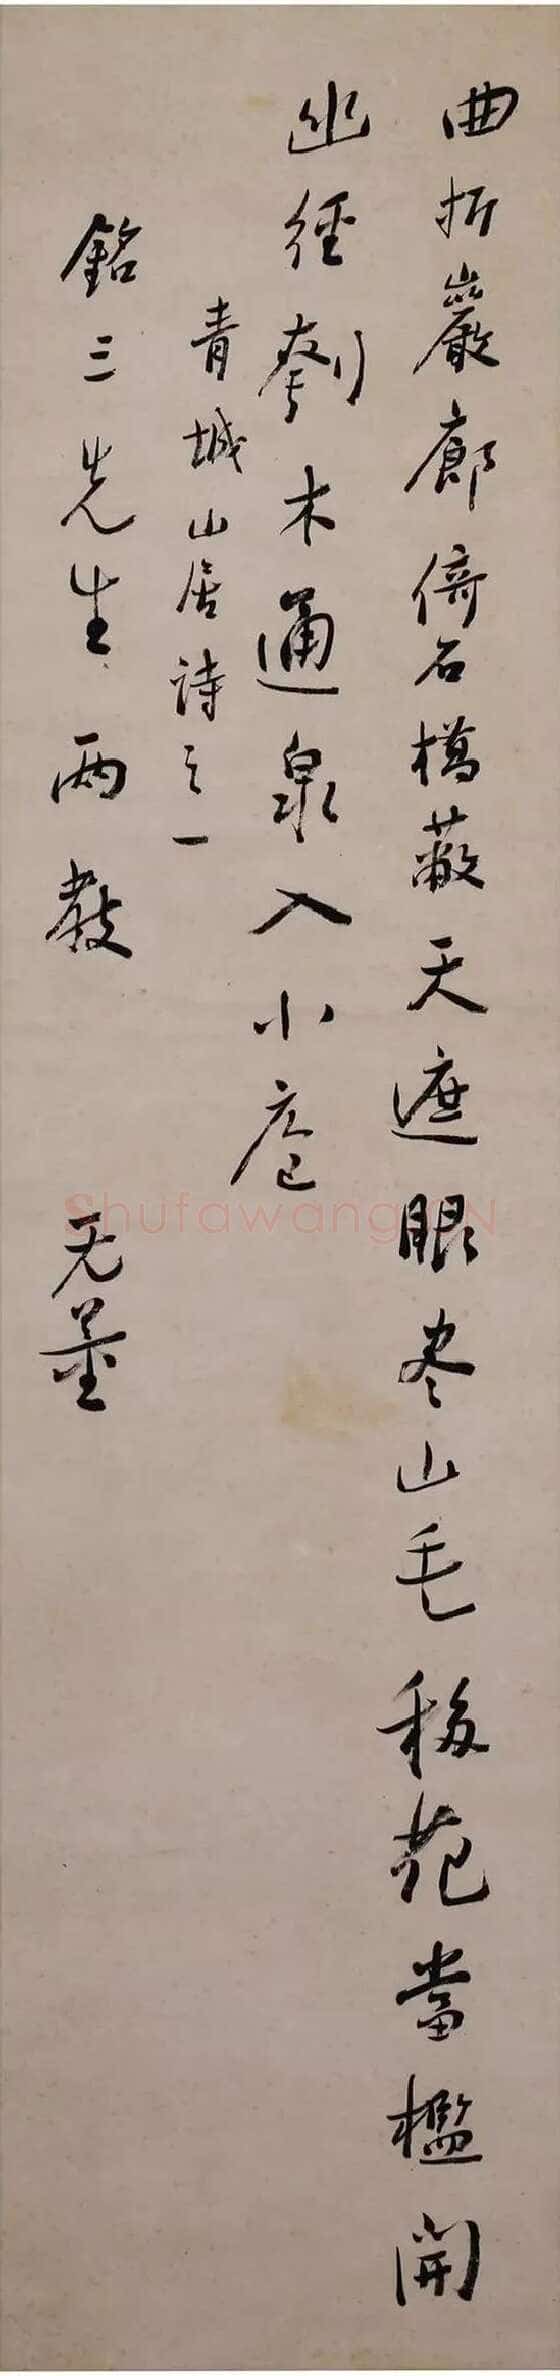 曲折巖廊倚石橋蔽天遮眼尽山毛移花當檻開
幽徑刳木通泉入小庖
青城山居诗之一
銘三先生两教
无量
Shufawang.CN